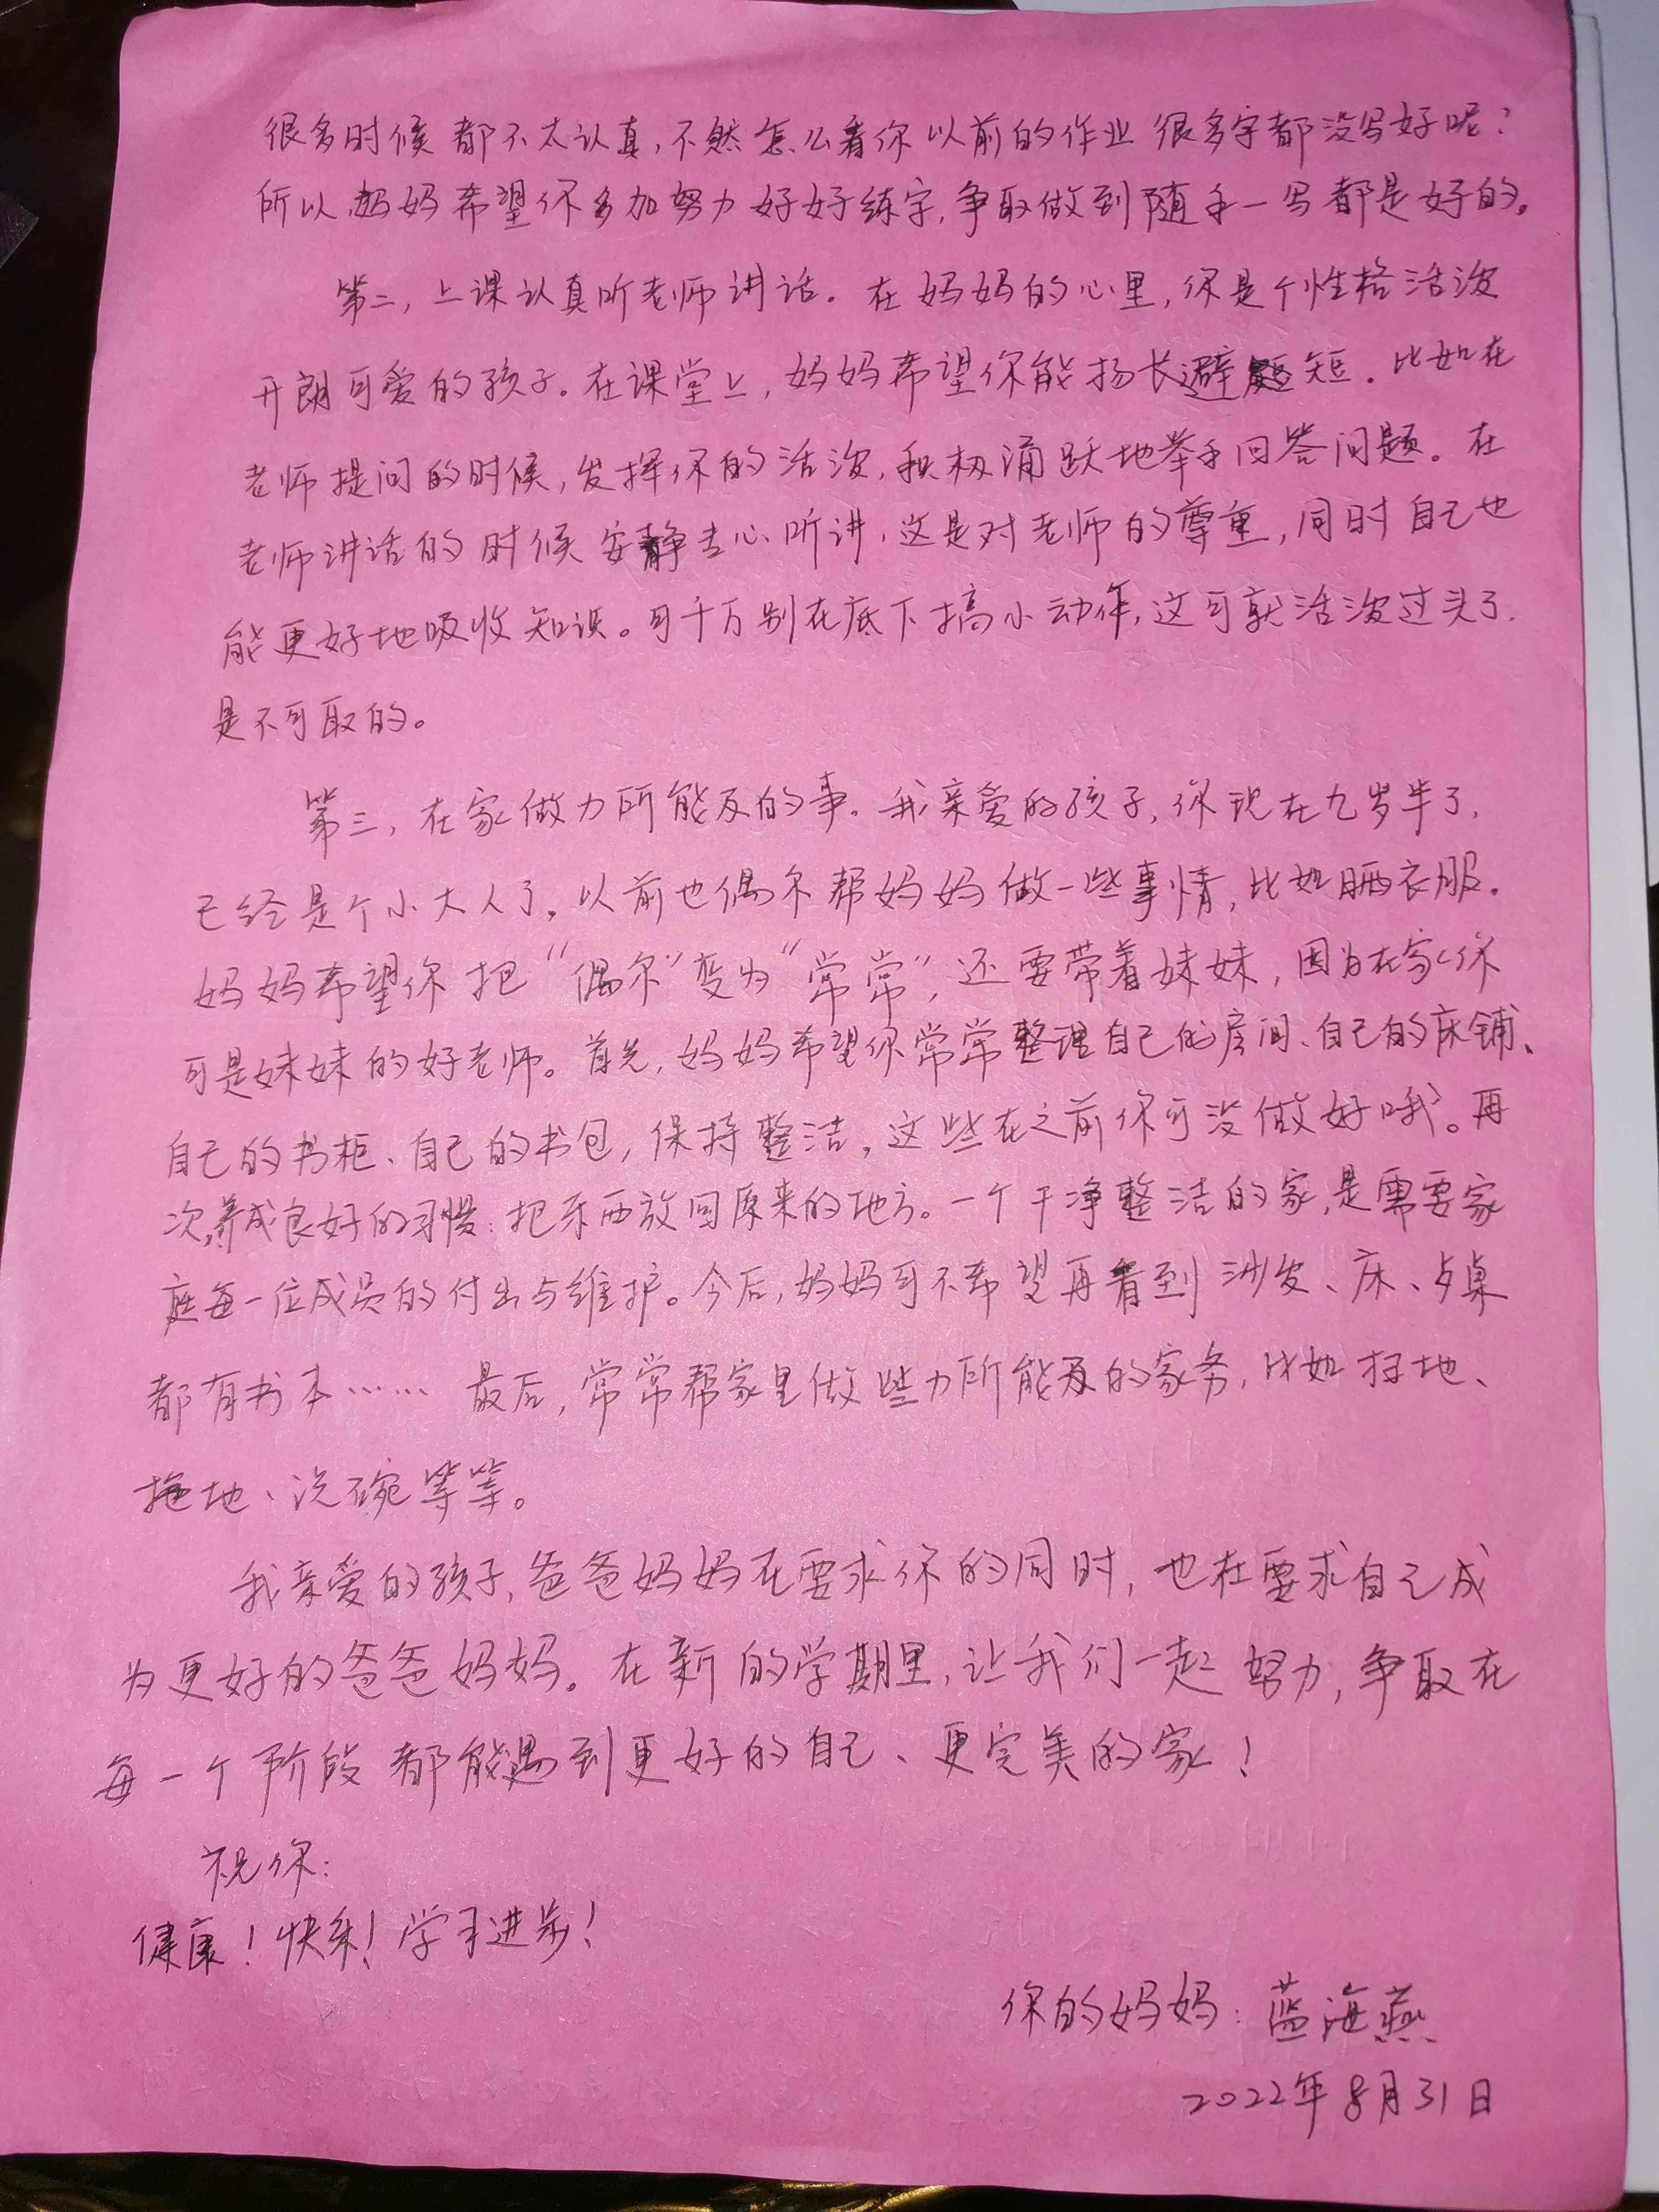 很多时候都不太认真,不然怎么看你以前的作业很多字都没写好呢?
所以,妈妈希望你多加努力好好练字,争取做到随手一写都是好的。
第二,上课认真听老师讲话。在妈妈的心里,你是个性格活泼
开朗可爱的孩子。在课堂上,妈妈希望你能扬长避短。比如在
老师提问的时候,发挥你的活泼,积极涌跃地举手回答问题。在
老师讲话的时候安静去心听讲,这是对老师的尊重,同时自己也
能更好地吸收知识。可千万别在底下搞小动作,这可就活泼过头了.
是不可取的。
第三,在家做力所能及的事。我亲爱的孩子,你现在九岁半了,
已经是个小大人了。以前也偶尔帮妈妈做一些事情,比如晒衣服。
妈妈希望你把“偶尔”变为“常常”,还要带着妹妹,因为在家你
可是妹妹的好老师。首先,妈妈希望你常常整理自己的房间、自己的床铺、
自己的书柜、自己的书包,保持整洁。这些在之前你可没做好哦。再
次,养成良好的习惯:把东西放回原来的地方。一个干净整洁的家,是需要家
庭每一位成员的付出与维护。今后,妈妈可不希望再看到沙发、床、桌
都有书本…… 最后,常常帮家里做些力所能及的家务,比如扫地、
拖地、洗碗等等。
我亲爱的孩子,爸爸妈妈在要求你的同时,也在要求自己成
为更好的爸爸妈妈。在新的学期里,让我们一起努力,争取在
每一个阶段都能遇到更好的自己、更完美的家!
祝你:
健康!快乐!学习进步!
你的妈妈:蓝海燕
2022年8月31日